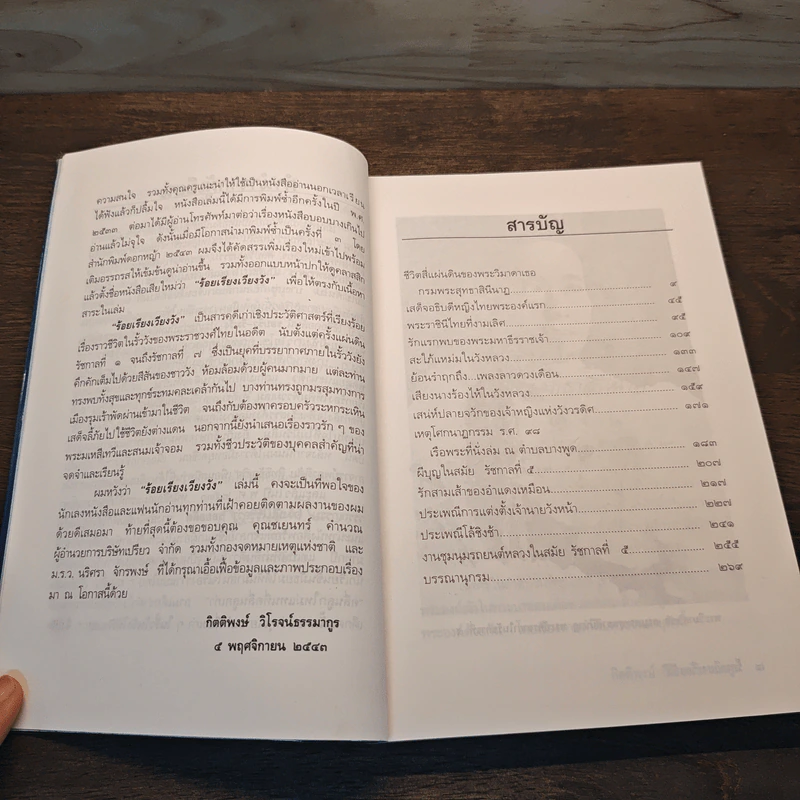 ความสนใจ รวมทั้งคุณครูแนะนำให้ใช้เป็นหนังสืออ่านนอกเวลาเรียน
ได้ฟังแล้วก็ปลื้มใจ หนังสือเล่มนี้ได้มีการพิมพ์ซ้ำอีกครั้งในปี พ.ศ.
๒๕๓๓ ต่อมาได้มีผู้อ่านโทรศัพท์มาต่อว่าเรื่องหนังสือบอบบางเกินไป
อ่านแล้วไม่จุใจ ดังนั้นเมื่อมีโอกาสนำมาพิมพ์ซ้ำเป็นครั้งที่ ๓ โดย
สำนักพิมพ์ดอกหญ้า ๒๕๔๓ ผมจึงได้คัดสรรเพิ่มเรื่องใหม่เข้าไปพร้อม
เติมอรรถรสให้เข้มข้นดูน่าอ่านขึ้น รวมทั้งออกแบบหน้าปกให้ดูคลาสสิก
แล้วตั้งชื่อหนังสือเสียใหม่ว่า "ร้อยเรียงเวียงวัง" เพื่อให้ตรงกับเนื้อหา
สาระในเล่ม
"ร้อยเรียงเวียงวัง" เป็นสารคดีเก่าเชิงประวัติศาสตร์ที่เรียงร้อย
เรื่องราวชีวิตในรั้ววังของพระราชวงศ์ไทยในอดีต นับตั้งแต่ครั้งแผ่นดิน
รัชกาลที่ ๑ จนถึงรัชกาลที่ ๗ ซึ่งเป็นยุคที่บรรยากาศภายในรั้ววังยัง
คึกคักเต็มไปด้วยสีสันของชาววัง ห้อมล้อมด้วยผู้คนมากมาย แต่ละท่าน
ทรงพบทั้งสุขและทุกข์ระทมคละเคล้ากันไป บางท่านทรงถูกมรสุมทางการ
เมืองรุมเร้าพัดผ่านเข้ามาในชีวิต จนถึงกับต้องพาครอบครัวระหกระเหิน
เสด็จลี้ภัยไปใช้ชีวิตยังต่างแดน นอกจากนี้ยังนำเสนอเรื่องราวรัก ๆ ของ
พระมเหสีเทวีและสนมเจ้าจอม รวมทั้งชีวประวัติของบุคคลสำคัญที่น่า
จดจำและเรียนรู้
ผมหวังว่า "ร้อยเรียงเวียงวัง" เล่มนี้ คงจะเป็นที่พอใจของ
นักเลงหนังสือและแฟนนักอ่านทุกท่านที่เฝ้าคอยติดตามผลงานของผม
ด้วยดีเสมอมา ท้ายที่สุดนี้ต้องขอขอบคุณ คุณชเยนทร์ คำนวณ
ผู้อำนวยการบริษัทเปรียว จำกัด รวมทั้งกองจดหมายเหตุแห่งชาติ และ
ม.ร.ว. นริศรา จักรพงษ์ ที่ได้กรุณาเอื้อเฟื้อข้อมูลและภาพประกอบเรื่อง
มา ณ โอกาสนี้ด้วย
กิตติพงษ์ วิโรจน์ธรรมากูร
๕ พฤศจิกายน ๒๕๔๓
สารบัญ
ชีวิตสี่แผ่นดินของพระวิมาดาเธอ
กรมพระสุทธาสินีนาฏ ๙
เสด็จอธิบดีหญิงไทยพระองค์แรก ๔๕
พระราชินีไทยที่งามเลิศ ๙๕
รักแรกพบของพระมหาธีรราชเจ้า ๑๐๙
สะใภ้แหม่มในวังหลวง ๑๓๓
ย้อนรำฤกถึง...เพลงลาวดวงเดือน ๑๔๗
เสียงนางร้องไห้ในวังหลวง ๑๕๙
เสน่ห์ปลายจวักของเจ้าหญิงแห่งวังวรดิศ ๑๗๑
เหตุโศกนาฏกรรม ร.ศ. ๙๘
เรือพระที่นั่งล่ม ณ ตำบลบางพูด ๑๘๓
ผีบุญในสมัย รัชกาลที่ ๕ ๒๐๗
รักสามเส้าของอำแดงเหมือน ๒๑๗
ประเพณีการแต่งตั้งเจ้านายวังหน้า ๒๒๗
ประเพณีโล้ชิงช้า ๒๔๑
งานชุมนุมรถยนต์หลวงในสมัย รัชกาลที่ ๕ ๒๕๕
บรรณานุกรม ๒๖๙